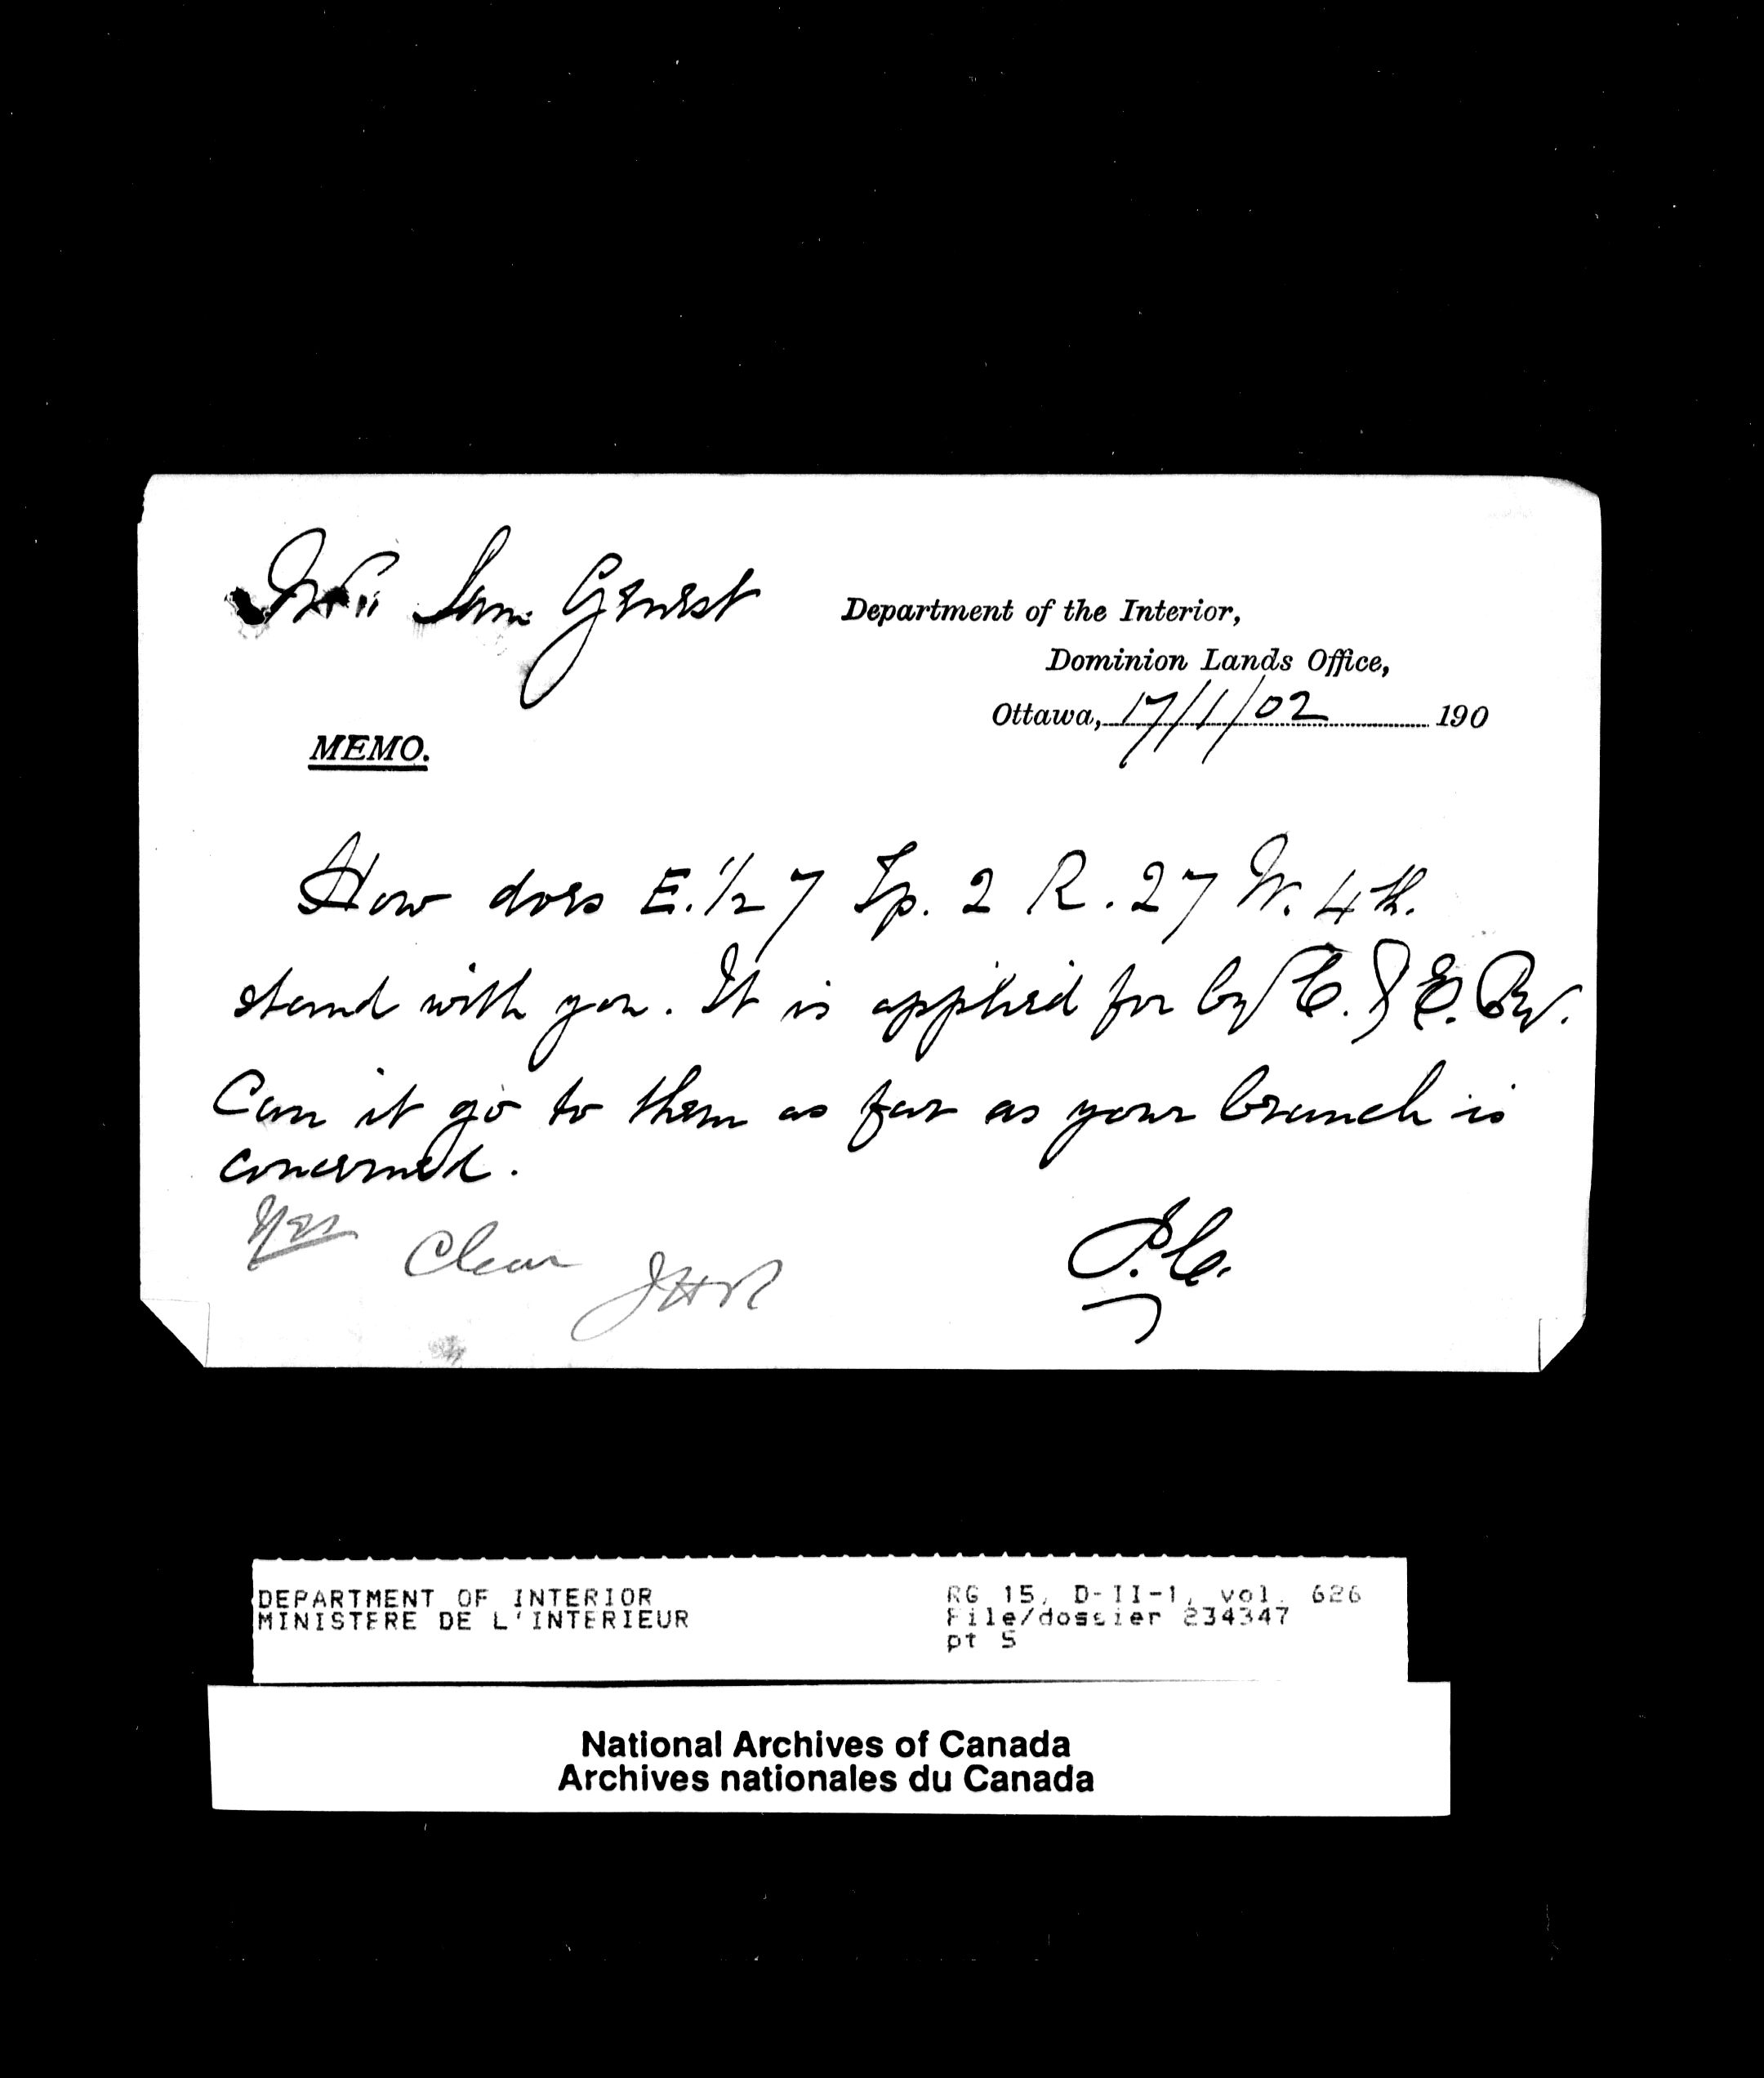 Mr. Sam Genest
Department of the Interior,
Dominion Lands Office,
Ottawa, 17/1/02 190
MEMO.
How does E. 1/2 7 Tp. 2 R. 27 W. 4th.
stand with you. It is applied for by C. & E. Ry.
Can it go to them as far as your branch is
concerned.
Yes Clear
P.C.
DEPARTMENT OF INTERIOR
MINISTERE DE L'INTERIEUR
RG 15, D-II-1, vol. 626
File/dossier 234347
pt 5
National Archives of Canada
Archives nationales du Canada